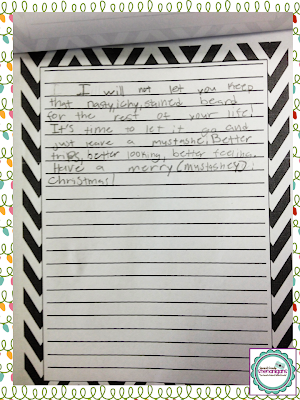 I will not let you keep
that nasty, ichy, stained beard
for the rest of your life!
It's time to let it go and
just leave a mustashe. Better
trips, better looking, better feeling.
Have a merry (mystashey)
Christmas!
shenanigans